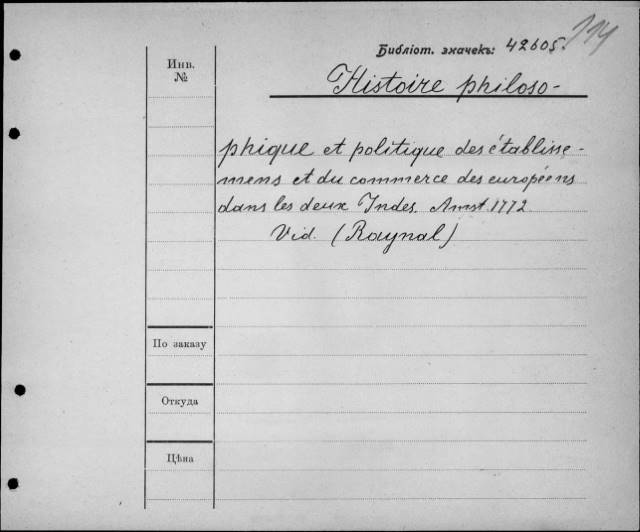 Библіот. значекъ: 42605. 114
Инв.
№
Histoire philoso-
phique et politique des établisse-
mens et du commerce des européens
dans les deux Indes. Amst. 1772
Vid. (Raynal)
По заказу
Откуда
Цѣна